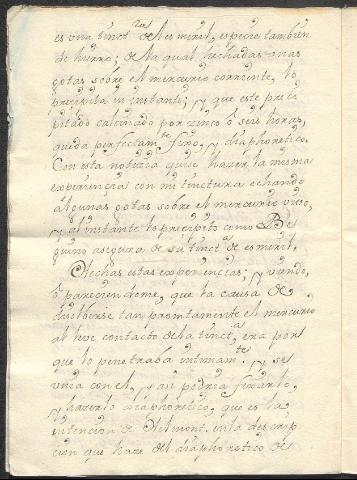 es una tinct.ra del esmeril, especie tambien
de hierro; de la qual hechadas unas
gotas sobre el mercurio corriente, lo
precipita in instante; y que este preci
pitado calcinado por cinco ò seis horas,
queda perfectam.te fixo, y diaphoretico.
Con esta noticia quise hazer la misma
experiencia con mi tinctura echando
algunas gotas sobre el mercurio vivo,
y al instante lo precipitò como Be
guini asegura de su tinct.a de esmeril.
Hechas estas experiencias; y viendo,
ò pareciendome, que la causa de
disolberse tan prontamente el mercurio
al leve contacto de la tinct.a era por
que lo penetraba intimam.te y se
unia con el, y asi podria fixarlo,
y hazerlo diaphoretico, que es la
intencion de Helmont. en la descrip
cion que haze del diaphoretico de